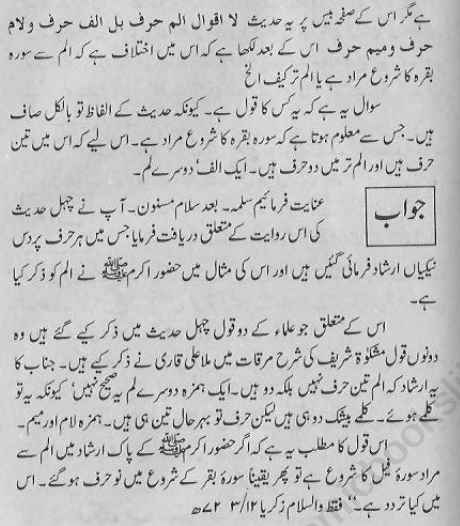 ہے مگر اس کے صفحہ بیس پر یہ حدیث لا اقوال الم حرف بل الف حرف ولام
حرف ومیم حرف اس کے بعد لکھا ہے کہ اس میں اختلاف ہے کہ الم سے سورہ
بقرہ کا شروع مراد ہے یا الم تر کیف الخ
سوال یہ ہے کہ یہ کس کا قول ہے۔ کیونکہ حدیث کے الفاظ تو بالکل صاف
ہیں۔ جس سے معلوم ہوتا ہے کہ سورہ بقرہ کا شروع مراد ہے۔ اس لیے کہ اس میں تین
حرف ہیں اور الم تر میں دو حرف ہیں۔ ایک الف‘ دوسرے لم۔
جواب
عنایت فرمائیم سلمہ۔ بعد سلام مسنون۔ آپ نے چہل حدیث
کی اس روایت کے متعلق دریافت فرمایا جس میں ہر حرف پر دس
نیکیاں ارشاد فرمائی گئیں ہیں اور اس کی مثال میں حضور اکرم ﷺ نے الم کو ذکر کیا
ہے۔
اس کے متعلق جو علماء کے دو قول چہل حدیث میں ذکر کیے گئے ہیں وہ
دونوں قول مشکوٰۃ شریف کی شرح مرقات میں ملا علی قاری نے ذکر کیے ہیں۔ جناب کا
یہ ارشاد کہ الم تین حرف نہیں بلکہ دو ہیں۔ ایک ہمزہ دوسرے لم یہ صحیح نہیں‘ کیونکہ یہ تو
کلمے ہوئے۔ کلمے بیشک دو ہی ہیں لیکن حرف تو بہرحال تین ہی ہیں۔ ہمزہ لام اور میم۔
اس قول کا مطلب یہ ہے کہ اگر حضور اکرم ﷺ کے پاک ارشاد میں الم سے
مراد سورۂ فیل کا شروع ہے تو پھر یقیناً سورۂ بقر کے شروع میں نو حرف ہو گئے۔ اس
میں کیا تردد ہے۔‘‘ فقط والسلام زکریا ۱۲/۳ ۷۲ھ